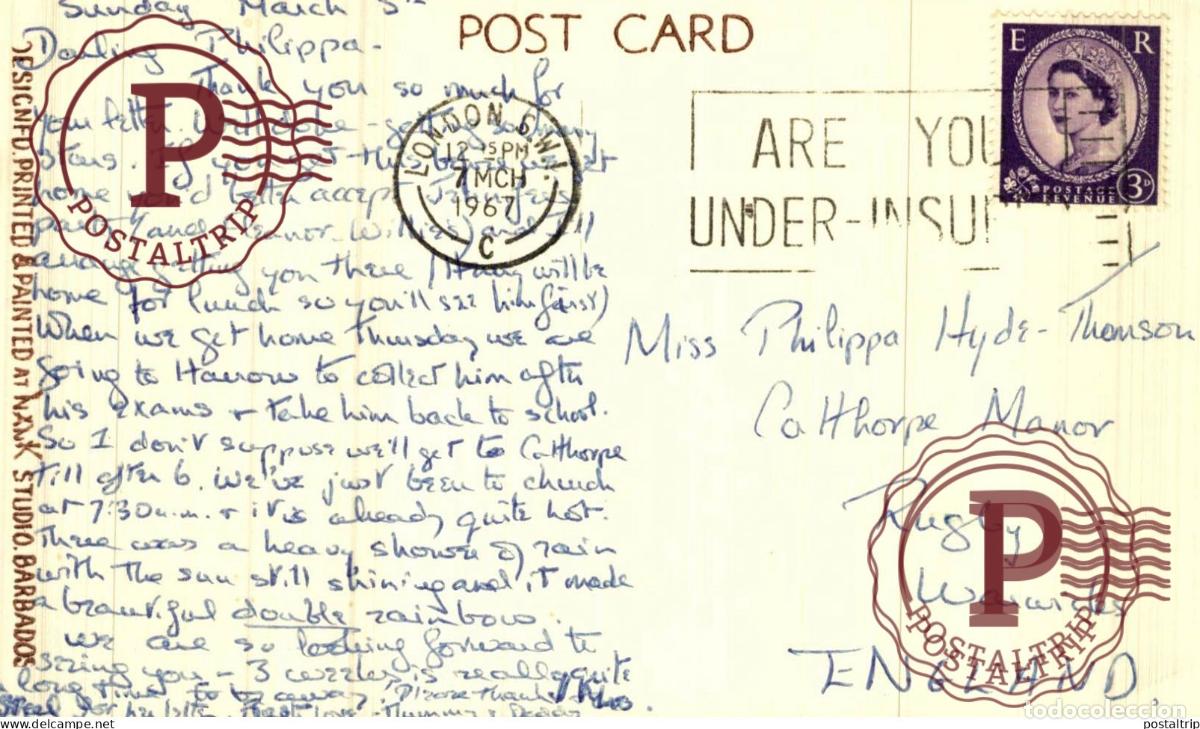 Sunday March 5th
POST CARD
Darling Philippa -
Thank you so much for
your letter. Well done - getting so many
stars. If you get this
home you'd better accept
party (and Eleanor Willis's) and I'll
arrange getting you there / will be
home for lunch so you'll see him first)
When we get home Thursday we are
going to Harrow to collect him after
his exams + take him back to school.
So I don't suppose we'll get to Calthorpe
till after 6. We've just been to church
at 7:30 a.m. + it is already quite hot.
There was a heavy shower of rain
with the sun still shining and it made
a beautiful double rainbow.
We are so looking forward to
seeing you - 3 weeks is really quite
a long time to be away. Please thank
for her letter. Best love - Mummy & Daddy
DESIGNED, PRINTED & PAINTED AT STUDIO. BARBADOS
LONDON S.W.1.
12 15 PM
7 MCH
1967
C
ARE YOU
UNDER-INSU
E R
POSTAGE
REVENUE
3D
Miss Philippa Hyde-Thomson
Calthorpe Manor
Rugby
Warwicks
ENGLAND.
P
POSTALTRIP
P
POSTALTRIP
POSTALTRIP
todocoleccion
www.todocoleccion.net
postaltrip